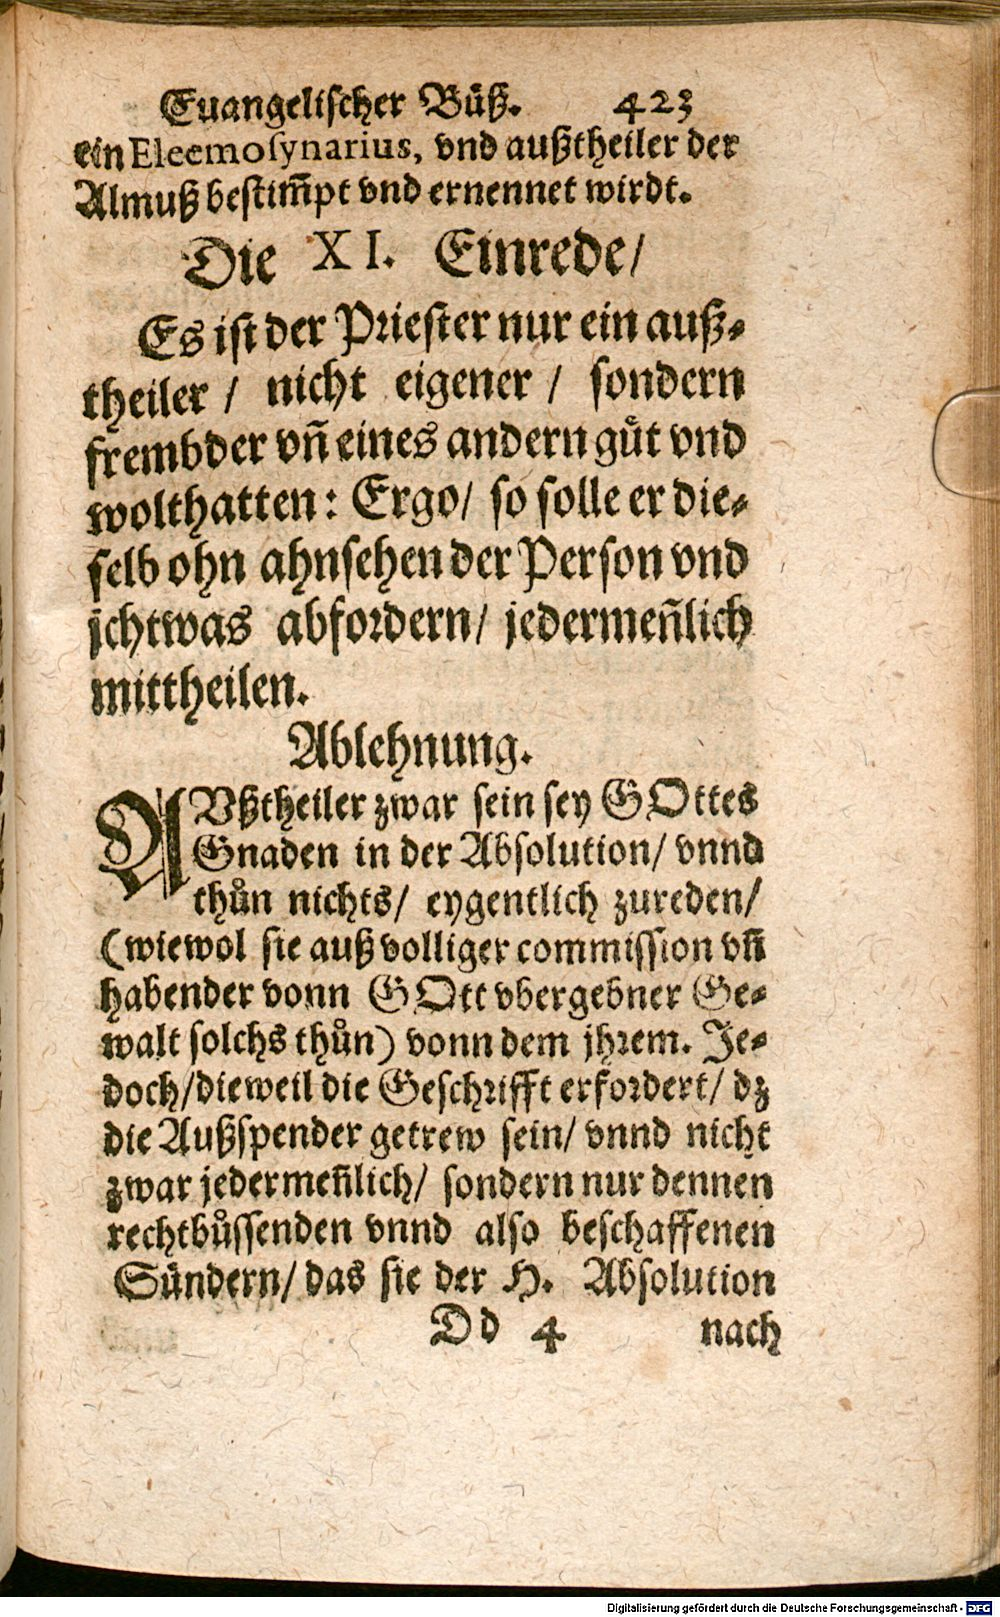 Euangelischer Büß. 423
ein Eleemosynarius, vnd außtheiler der
Almuß bestim̃pt vnd ernennet wirdt.
Die XI. Einrede/
Es ist der Priester nur ein auß-
theiler / nicht eigener / sondern
frembder vñ eines andern gůt vnd
wolthatten: Ergo/ so solle er die-
selb ohn ahnsehen der Person vnd
ichtwas abfordern/ jedermeñlich
mittheilen.
Ablehnung.
AVßtheiler zwar sein sey GOttes
Gnaden in der Absolution/ vnnd
thůn nichts/ eygentlich zureden/
(wiewol sie auß volliger commission vñ
habender vonn GOtt vbergebner Ge-
walt solchs thůn) vonn dem jhrem. Je-
doch/dieweil die Geschrifft erfordert/ dz
die Außspender getrew sein/ vnnd nicht
zwar jedermeñlich/ sondern nur dennen
rechtbůssenden vnnd also beschaffenen
Sündern/ das sie der H. Absolution
Dd 4 nach
Digitalisierung gefördert durch die Deutsche Forschungsgemeinschaft - DFG